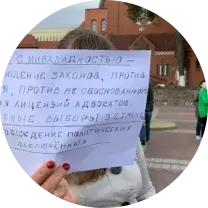 С ИНВАЛИДНОСТЬЮ —
ЮДЕНИЕ ЗАКОНОВ, ПРОТИВ
Я, ПРОТИВ НЕ ОБОСНОВАННОГО
ИЯ ЛИЦЕНЗИЙ АДВОКАТОВ.
ТНЫЕ ВЫБОРЫ В СТРАНЕ
ОБОЖДЕНИЕ ПОЛИТИЧЕСКИХ
ЗАКЛЮЧЁННЫХ